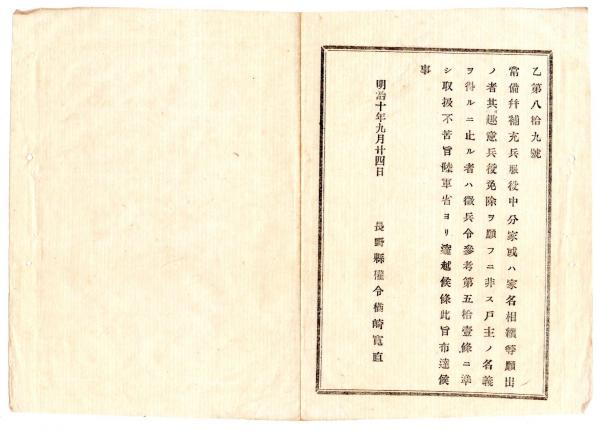 乙第八拾九號
常備幷補充兵服役中分家或ハ家名相續等願出
ノ者其趣意兵役免除ヲ願フニ非ス戸主ノ名義
ヲ得ルニ止ル者ハ徵兵令參考第五拾壹條ニ準
シ取扱不苦旨陸軍省ヨリ達越候條此旨布達候
事
明治十年九月廿四日
長野縣權令楢崎寬直